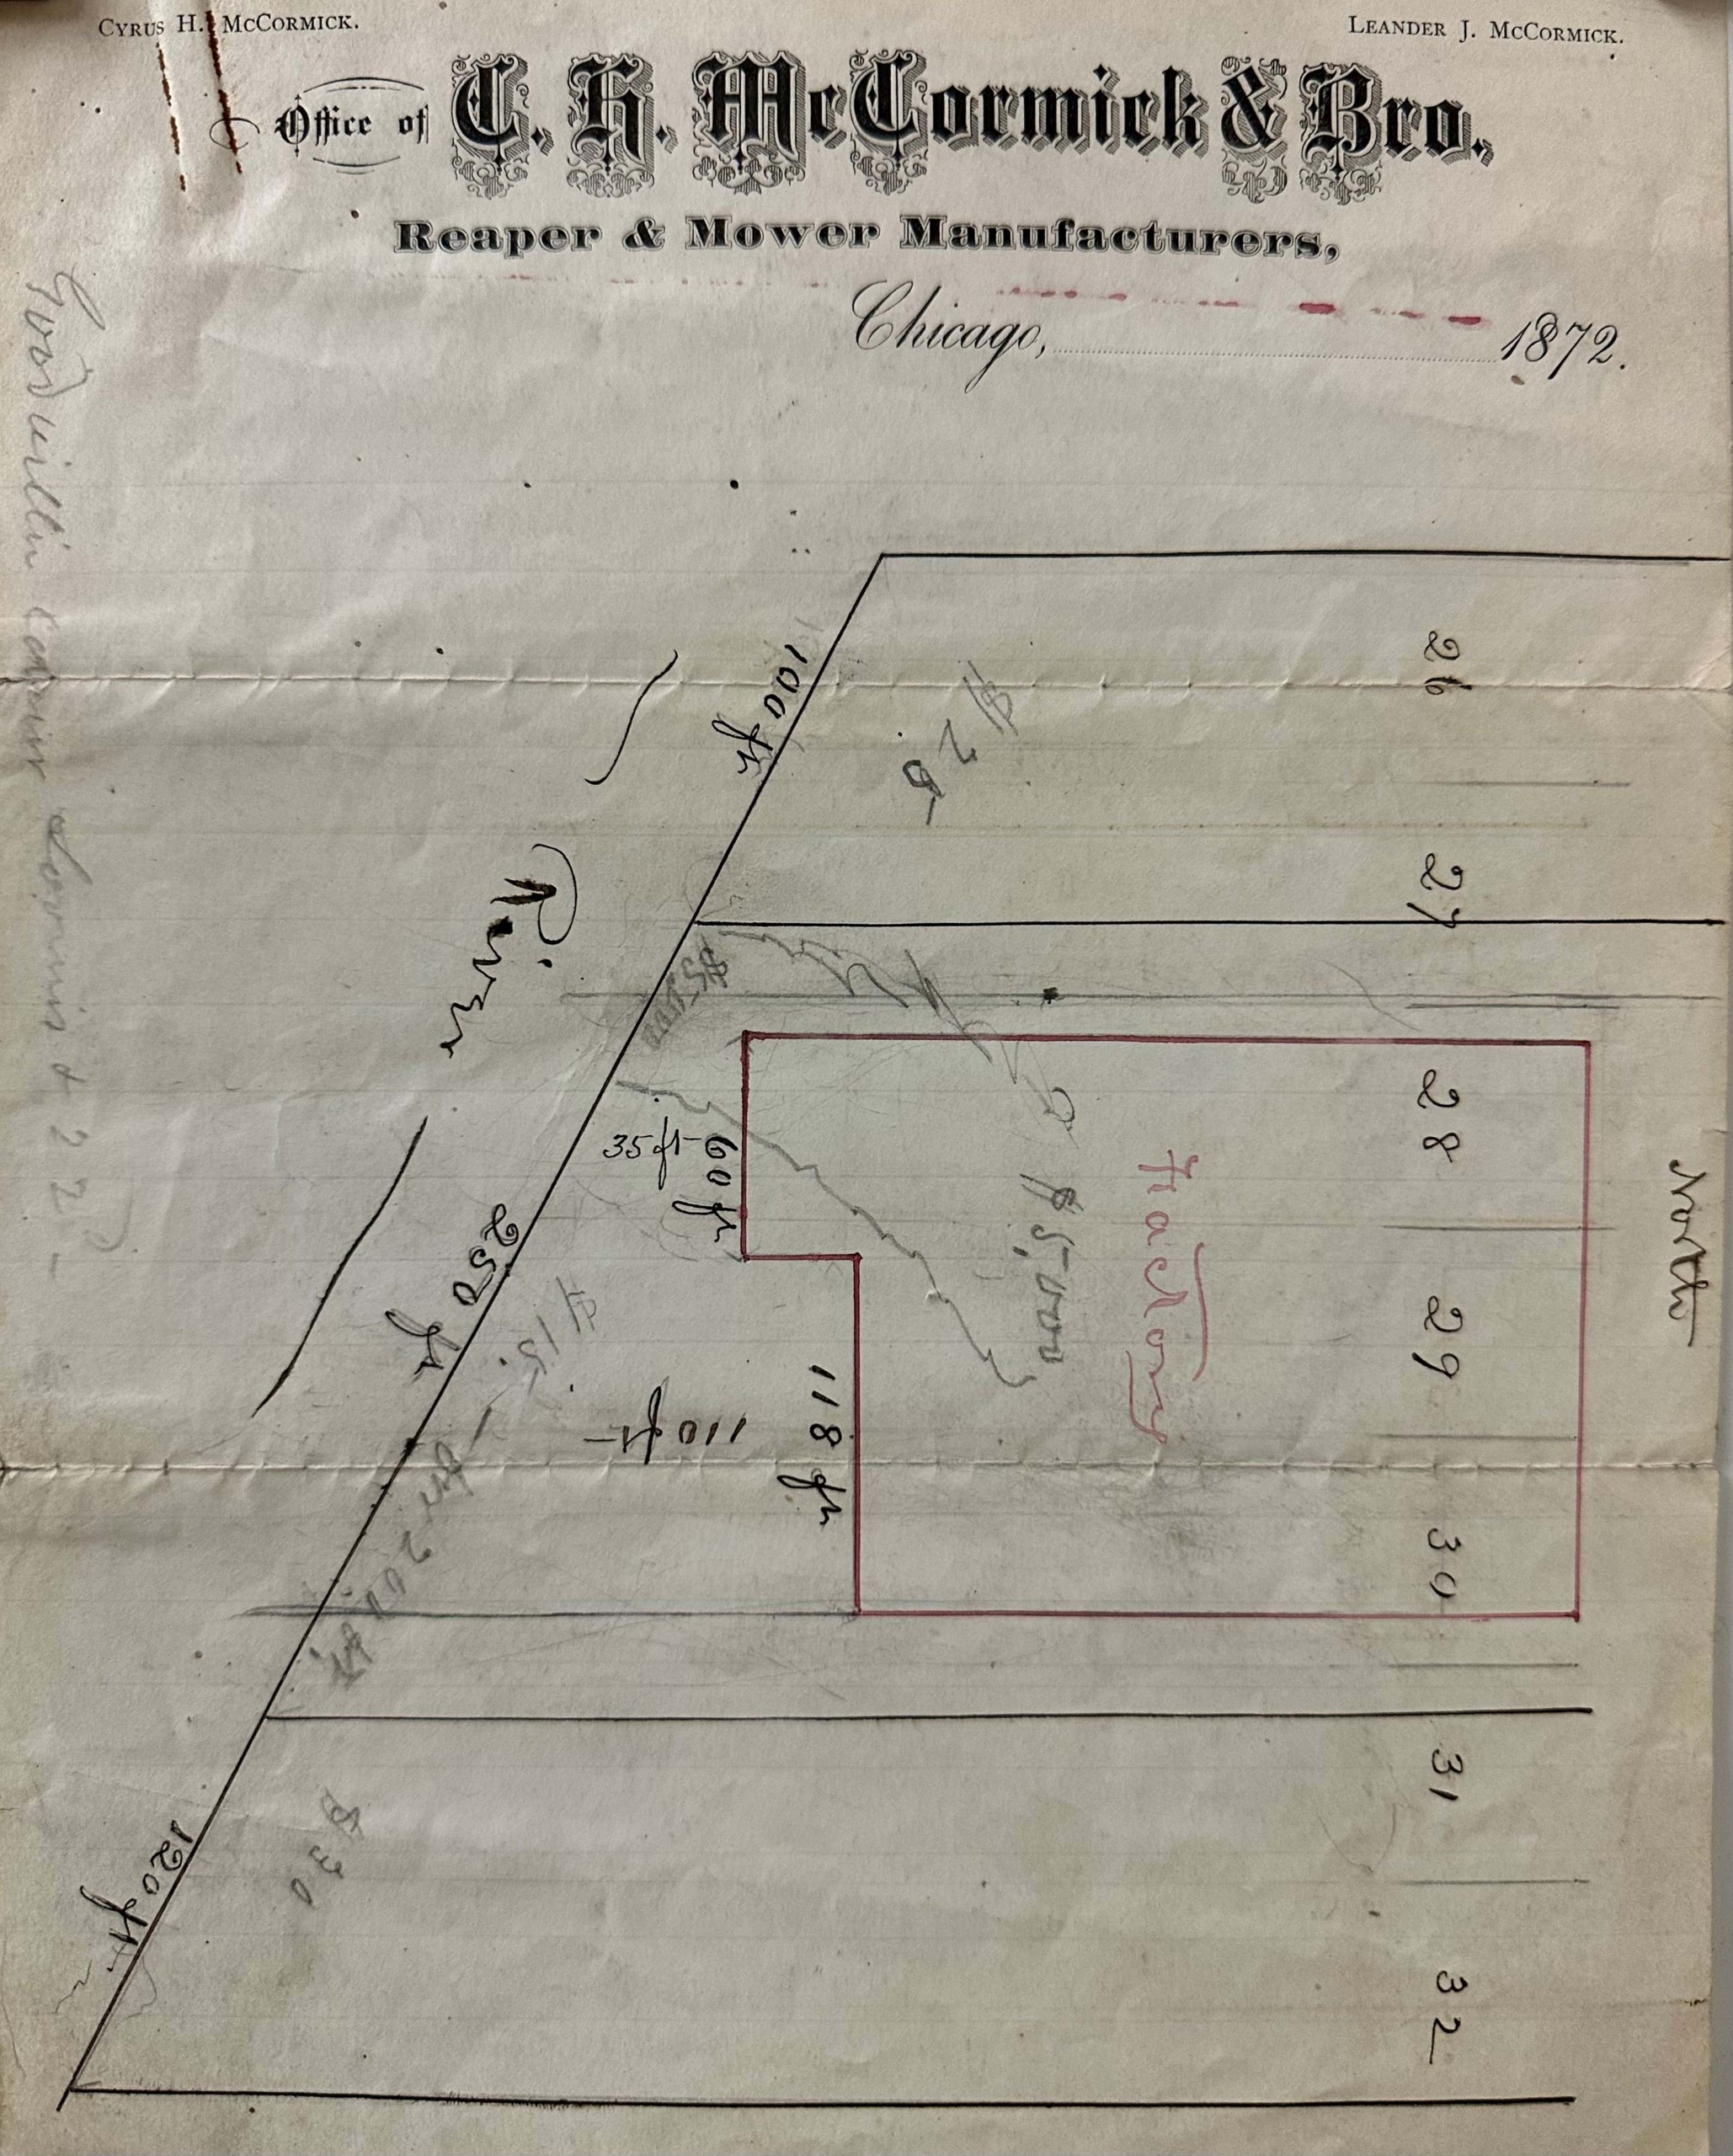 CYRUS H. McCORMICK.
LEANDER J. McCORMICK.
Office of C. H. McCormick & Bro.
Reaper & Mower Manufacturers,
Chicago, 1872.
26
27
28
29
30
31
32
North
100 ft
$25
River
$5000
35 ft
60 ft
250 ft
$15.
for 200 ft.
110 ft
118 ft
$5,000
Factory
120 ft
$30